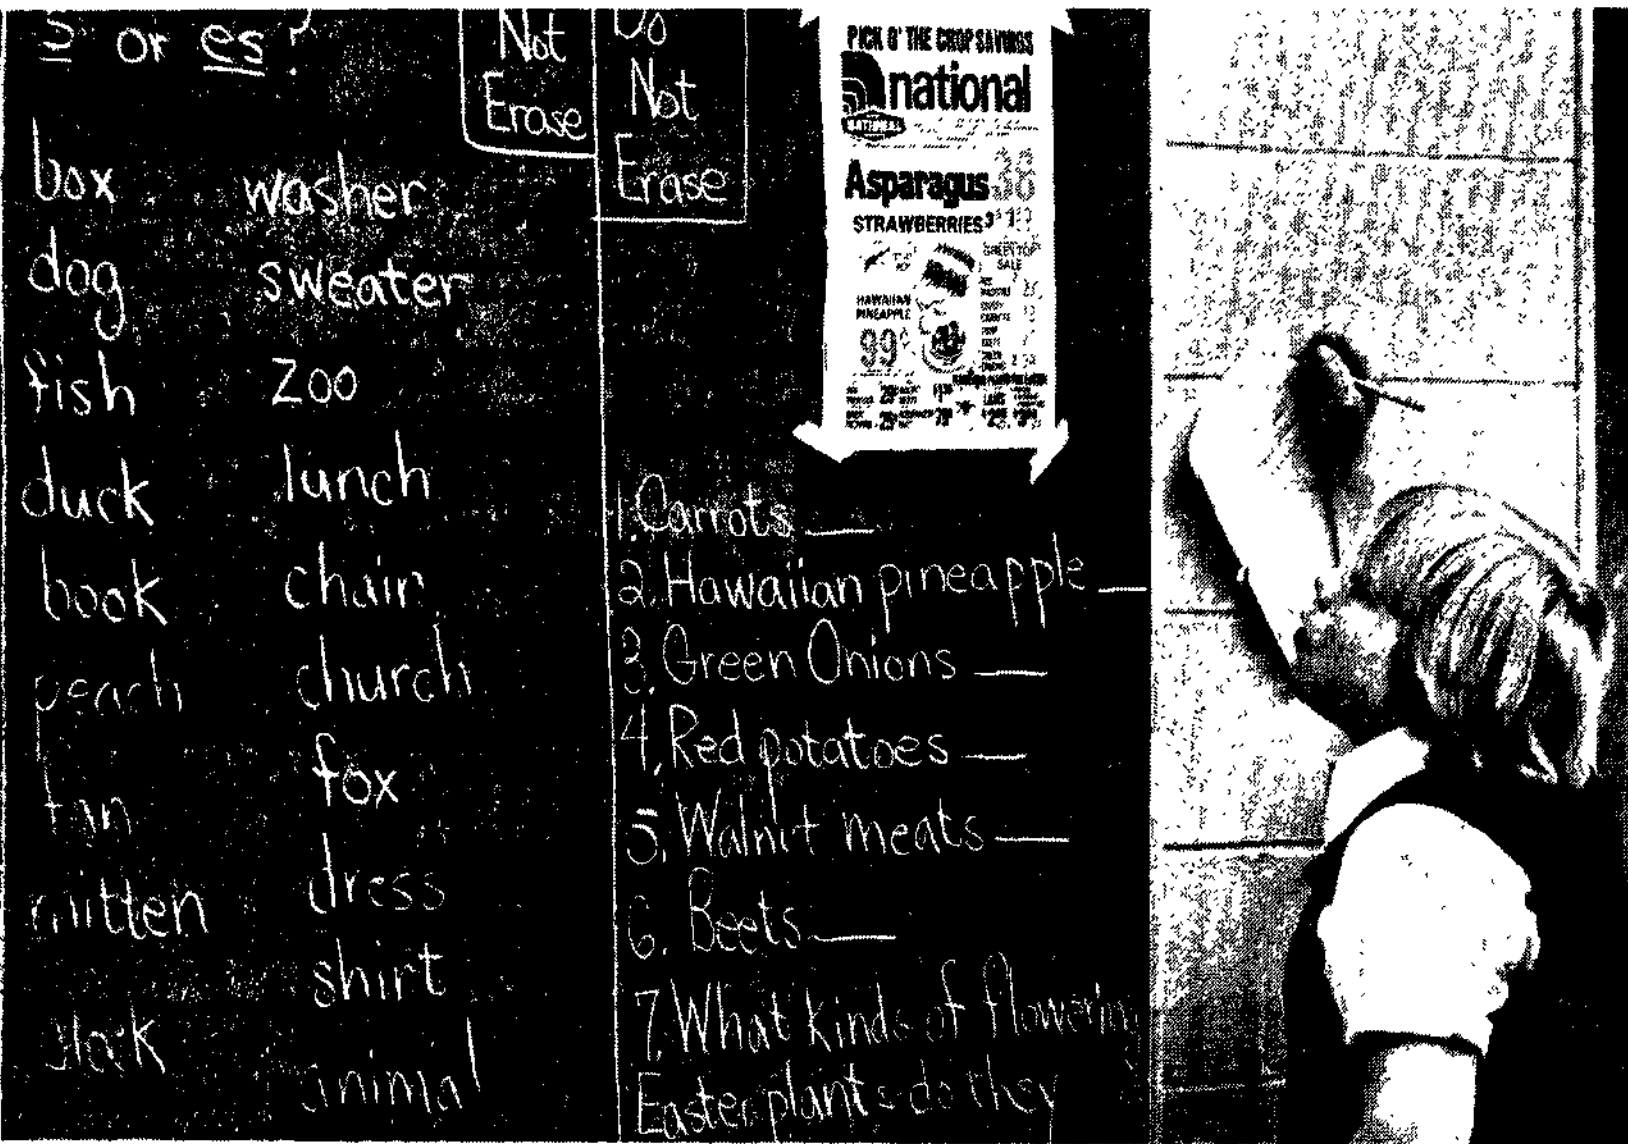 s or es?
box
dog
fish
duck
book
peach
fan
mitten
clock
washer
sweater
zoo
lunch
chair
church
fox
dress
shirt
animal
Not
Erase
Do
Not
Erase
PICK O' THE CROP SAVINGS
national
NATIONAL
Asparagus 38
STRAWBERRIES 3
SALE
HAWAIIAN
PINEAPPLE
99¢
1. Carrots __
2. Hawaiian pineapple __
3. Green Onions __
4. Red potatoes __
5. Walnut meats __
6. Beets __
7. What kinds of flowering
Easter plants do they